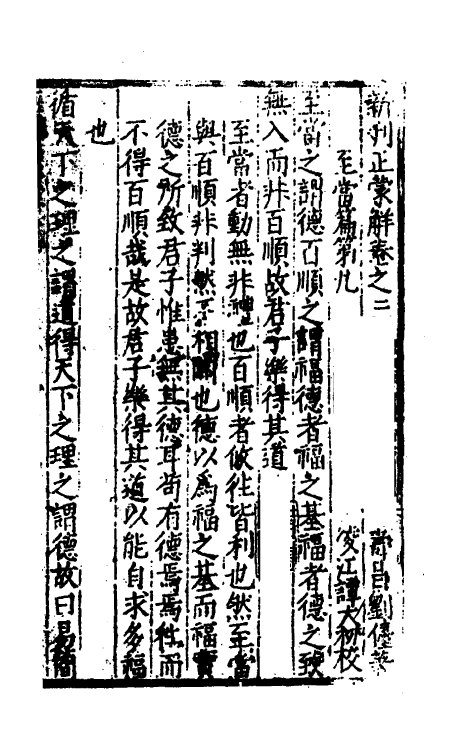 新刋正蒙解卷之二
壽昌劉儓著
至當篇第九
交江譚大初校
至當之謂德百順之謂福德者福之基福者德之致
無入而非百順故君子樂得其道
至當者動無非禮也百順者攸往皆利也然至當
與百順非判然不相關也德以爲福之基而福實
德之所致君子惟患無其德耳苟有德焉焉徃而
不得百順哉是故君子樂得其道以能自求多福
也
循天下之理之謂道得天下之理之謂德故曰易簡